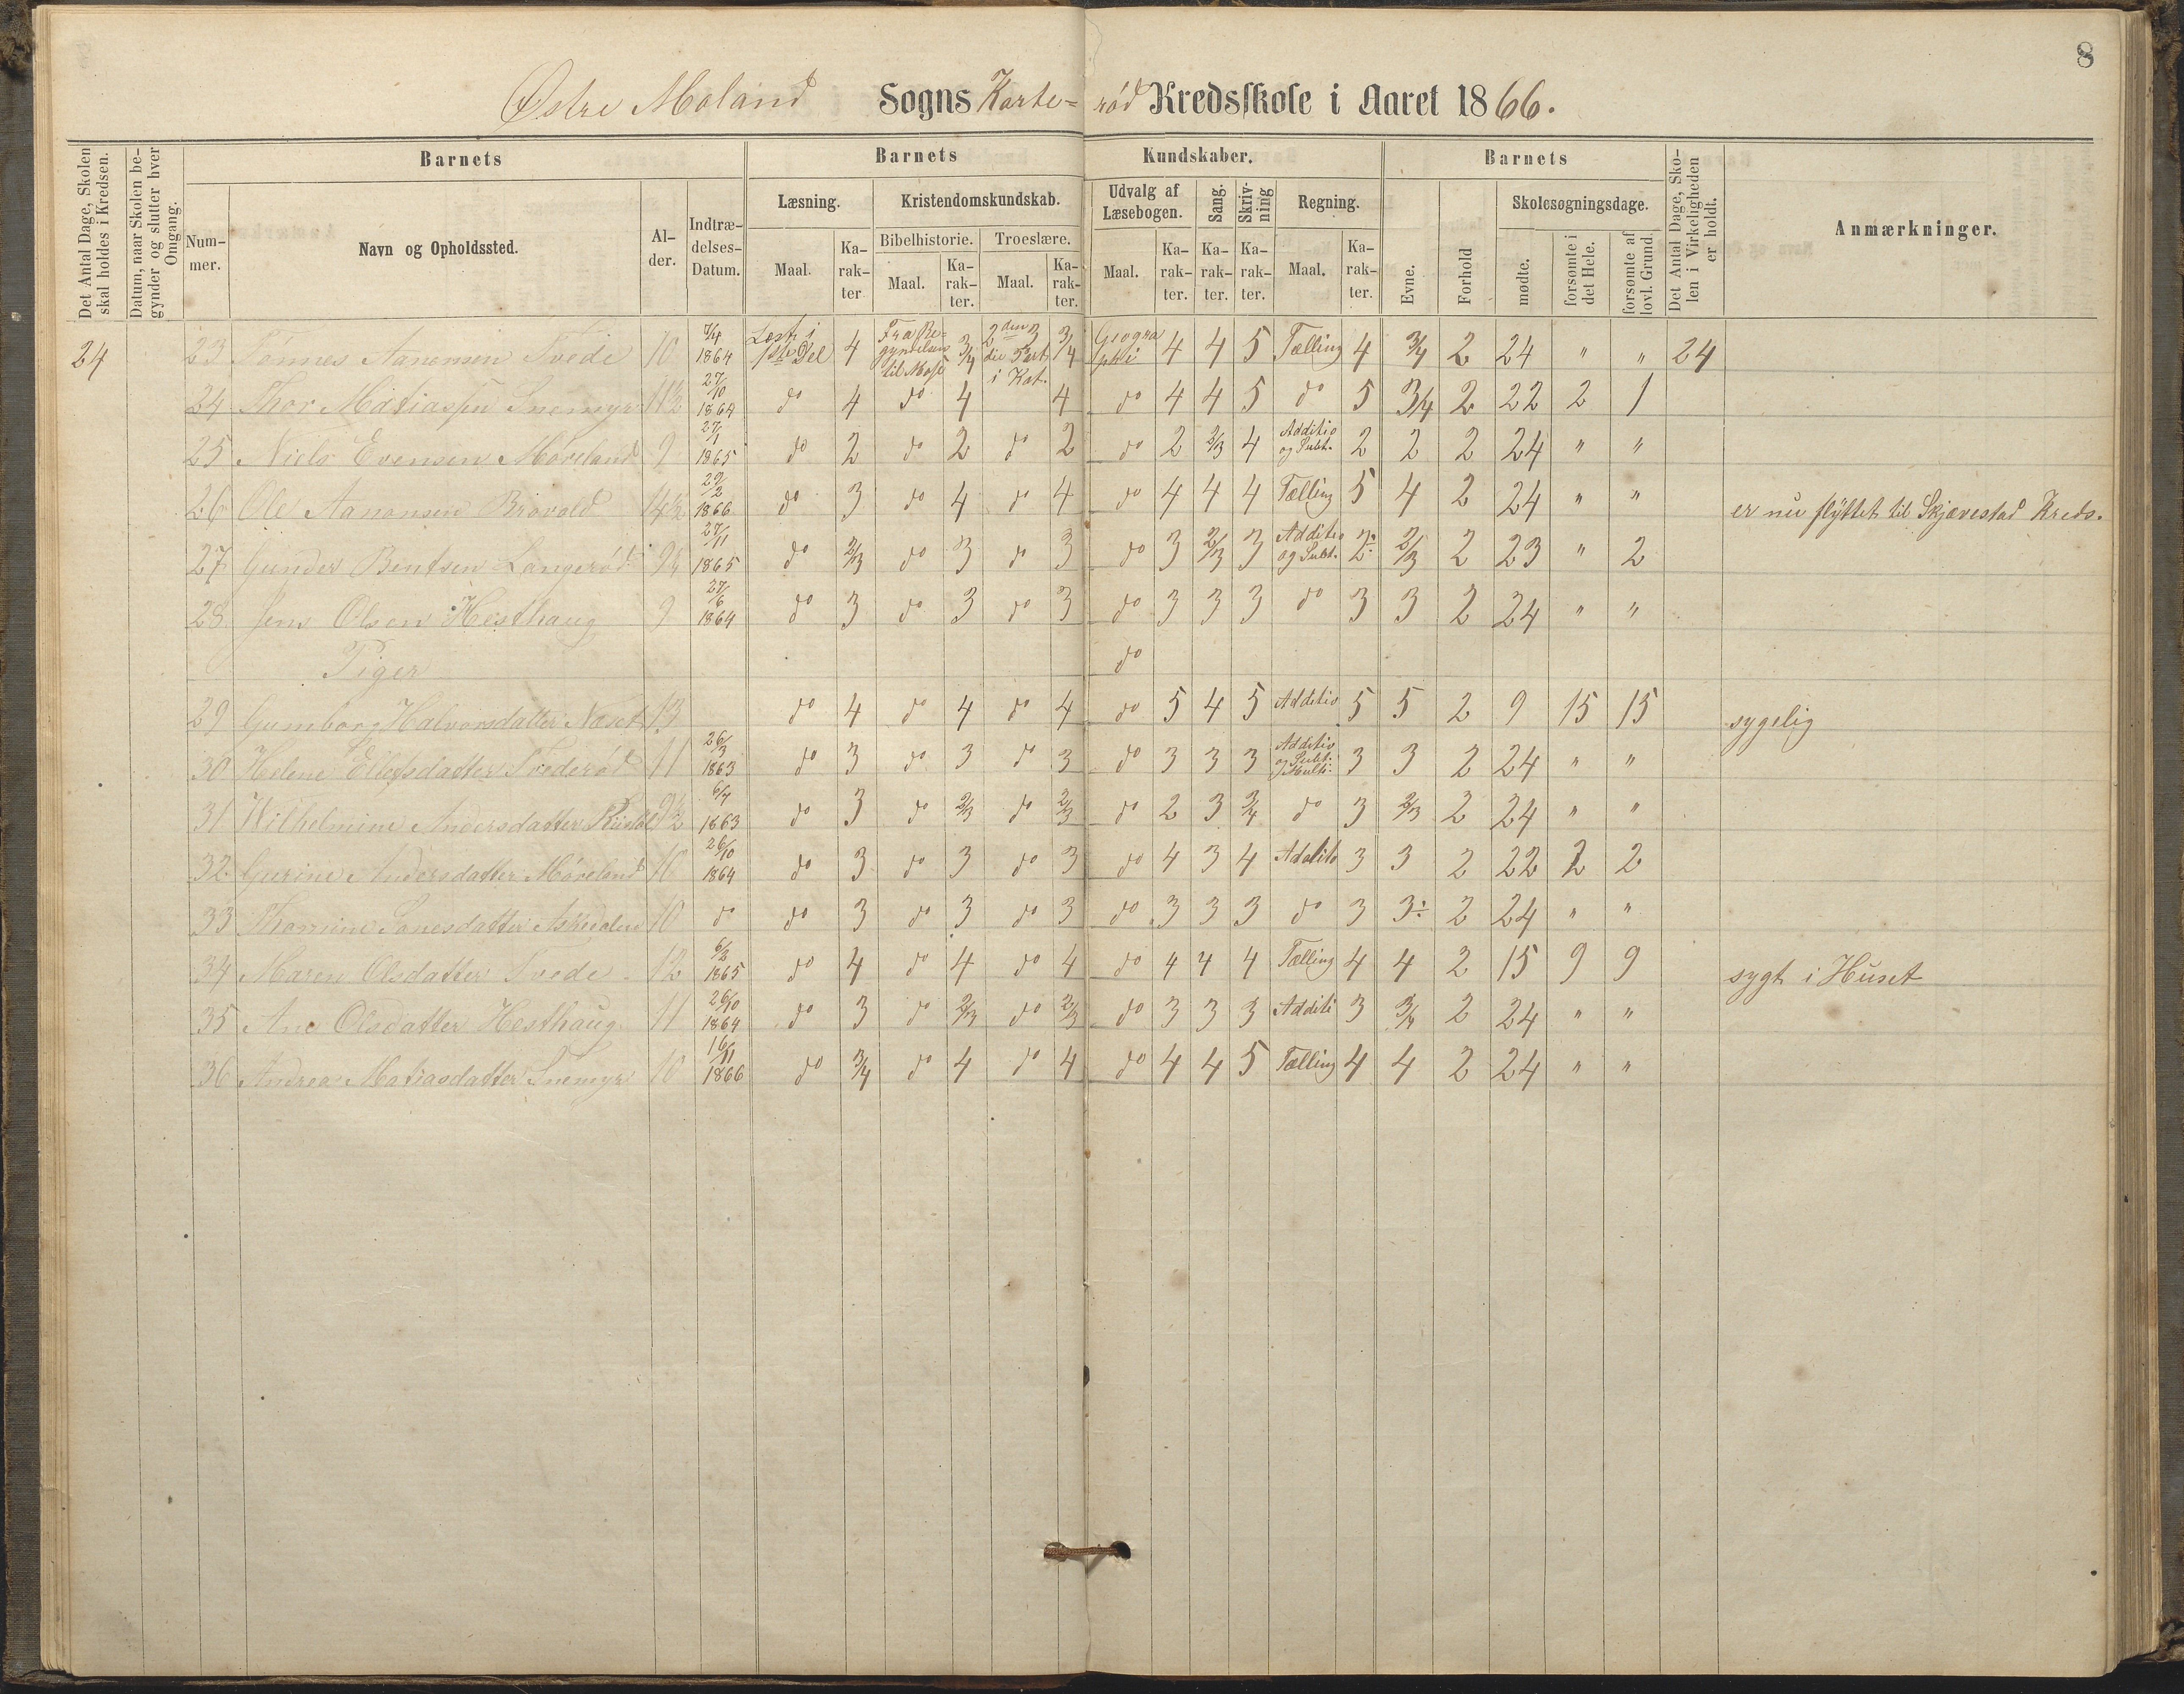 8
Østre Moland Sogns Karte= rød Kredsskole i Aaret 1866.
Det Antal Dage, Skolen skal holdes i Kredsen.
Datum, naar Skolen begynder og slutter hver Omgang.
Barnets
Barnets Kundskaber.
Barnets
Det Antal Dage, Skolen i Virkeligheden er holdt.
Anmærkninger.
Nummer.
Navn og Opholdssted.
Alder.
Indtrædelses-Datum.
Læsning.
Kristendomskundskab.
Udvalg af Læsebogen.
Sang.
Skrivning
Regning.
Evne.
Forhold
Skolesøgningsdage.
Bibelhistorie.
Troeslære.
mødte.
forsømte i det Hele.
forsømte af lovl. Grund.
Maal. Karakter Maal. Karakter. Maal. Karakter. Maal. Karakter. Karakter. Karakter. Maal. Karakter.
24 23 Tonnes Aanonsen Tvede 10 7/4 1864 Læst i 1ste Del 4 Fra Begyndelsen til Mose 3/4 2den 3die Part i Kat. 3/4 Geographi 4 4 5 Tælling 4 3/4 2 24 " " 24
24 Thor Matiassen Snemyr 11½ 27/10 1864 do 4 do 4 4 do 4 4 5 do 5 3/4 2 22 2 1
25 Niels Evensen Møreland 9 27/1 1865 do 2 do 2 do 2 do 2 2/3 4 Additio og Subt. 2 2 2 24 " "
26 Ole Aanonsen 14½ 29/2 1866 do 3 do 4 do 4 do 4 4 4 Tælling 5 4 2 24 " " er nu flyttet til Skjævestad Kreds.
27 Gunder Bentsen Langerød 9½ 27/11 1865 do 2/3 do 3 do 3 do 3 2/3 3 Additio og Subt. 2÷ 2/3 2 23 " 2
28 Jens Olsen Hesthaug 9 27/6 1864 do 3 do 3 do 3 do 3 3 3 do 3 3 2 24 " "
Piger do
29 Gumborg Halvorsdatter Næset 13 do 4 do 4 do 4 do 5 4 5 Additio 5 5 2 9 15 15 sygelig
30 Helene Ellefsdatter Trederød 11 26/3 1863 do 3 do 3 do 3 do 3 3 3 Additio og Subt. Multi: 3 3 2 24 " "
31 Wilhelmine Andersdatter 9½ 6/4 1863 do 3 do 2/3 do 2/3 do 2 3 3/4 do 3 2/3 2 24 " "
32 Gurine Andersdatter Møreland 10 26/10 1864 do 3 do 3 do 3 do 4 3 4 Additio 3 3 2 22 2 2
33 Thomine Tonesdatter 10 do do 3 do 3 do 3 do 3 3 3 do 3 3÷ 2 24 " "
34 Maren Olsdatter Tvede 12 6/2 1865 do 4 do 4 do 4 do 4 4 4 Tælling 4 4 2 15 9 9 sygt i Huset
35 Ane Olsdatter Hesthaug 11 26/10 1864 do 3 do 2/3 do 2/3 do 3 3 3 Additi 3 3/4 2 24 " "
36 Andrea Matiasdatter Snemyr 10 16/11 1866 do 3/4 do 4 do 4 do 4 4 5 Tælling 4 4 2 24 " "